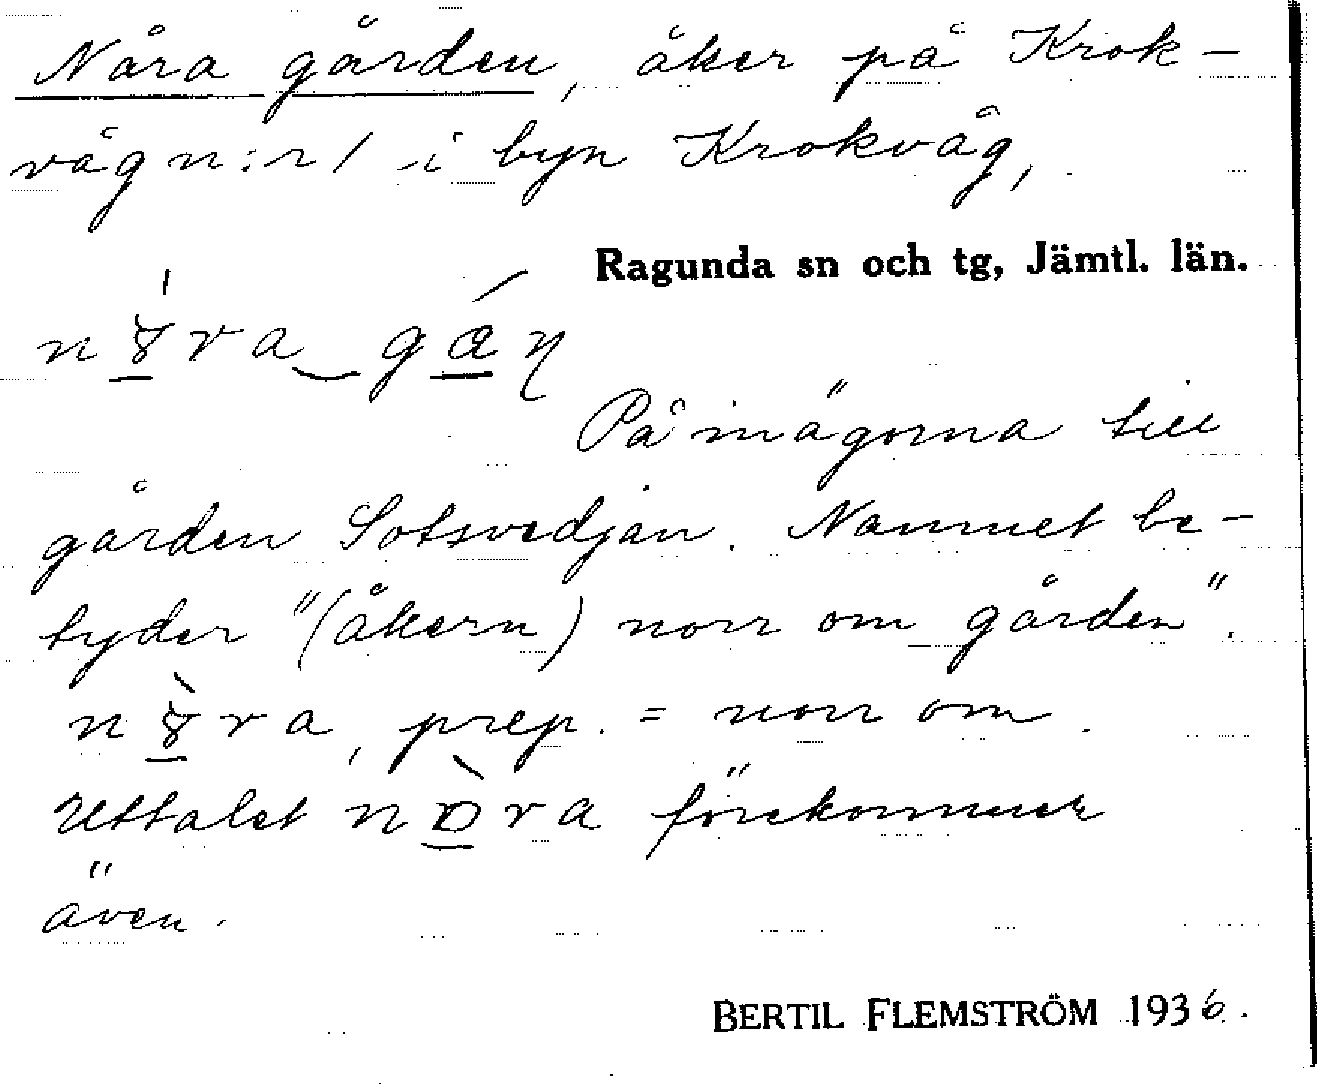 Nåra gården, åker på Krok-
våg n:r 1 i byn Krokvåg,
Ragunda sn och tg, Jämtl. län.
På inägorna till
gården Sotsvedjan. Namnet be-
tyder "(åkern) norr om gården".
prep. = norr om.
Uttalet förekommer
även.
BERTIL FLEMSTRÖM 1936.